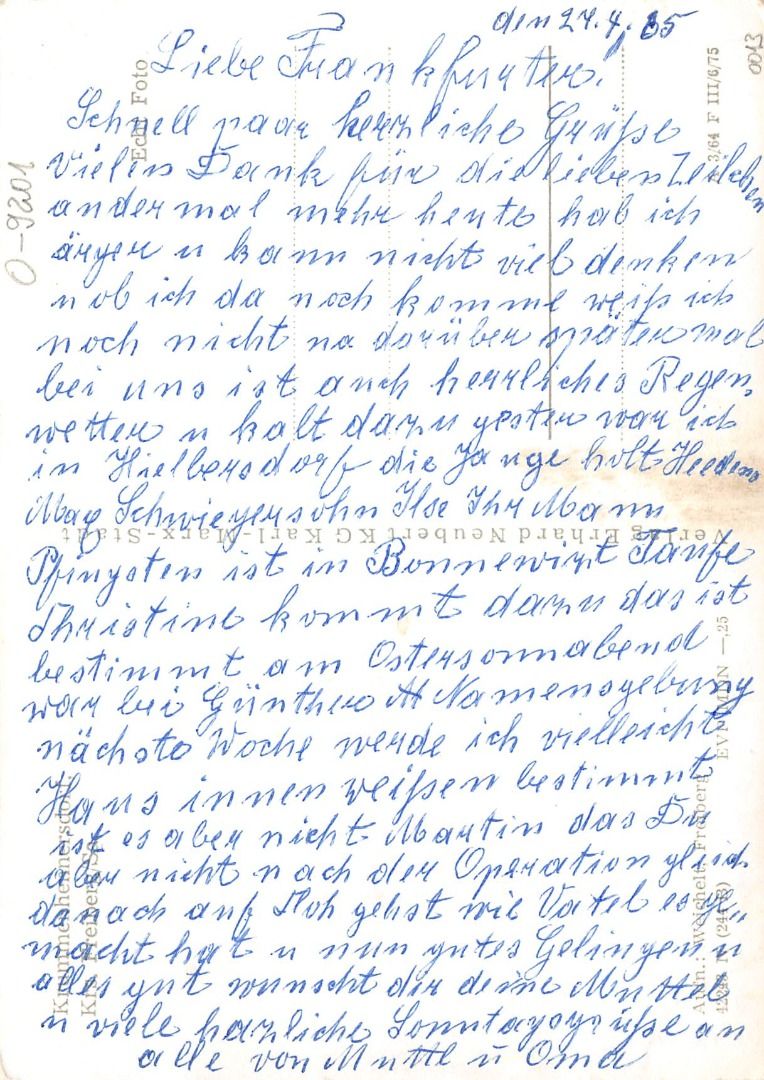 den 27.4.65
Liebe Frankfurter!
Schnell paar herzliche Grüße
Vielen Dank für die lieben Zeilchen
andermal mehr heute hab ich
ärger u kann nicht viel denken
u ob ich da noch komme weiß ich
noch nicht na darüber später mal
bei uns ist auch herrliches Regen,
wetter u kalt dazu gester war ich
in Hielbersdorf die Jauge holt
May Schwiegersohn Ilse Ihr Mann
Pfingsten ist in Bonnewirt Taufe
Christine kommt dazu das ist
bestimmt am Ostersonnabend
war bei Günthers Namensgebung
nächste Woche werde ich vielleicht
Haus innen weißen bestimmt
ist es aber nicht. Martin das Du
aber nicht nach der Operation gleich
danach auf gehst wie Vatel es ge,,
macht hat u nun gutes Gelingen u
alles gut wünscht dir deine Muttel
u viele harzliche Sonntagsgrüße an
alle von Muttl u Oma
O-9201
0013
Echt Foto
3/64 F III/6/75
Verlag Erhard Neubert KG Karl-Marx-Stadt
EVP MDN —,25
Krummenhennersdorf
Kr. Freiberg/Sa.
Aufn.: Weichelt, Freiberg